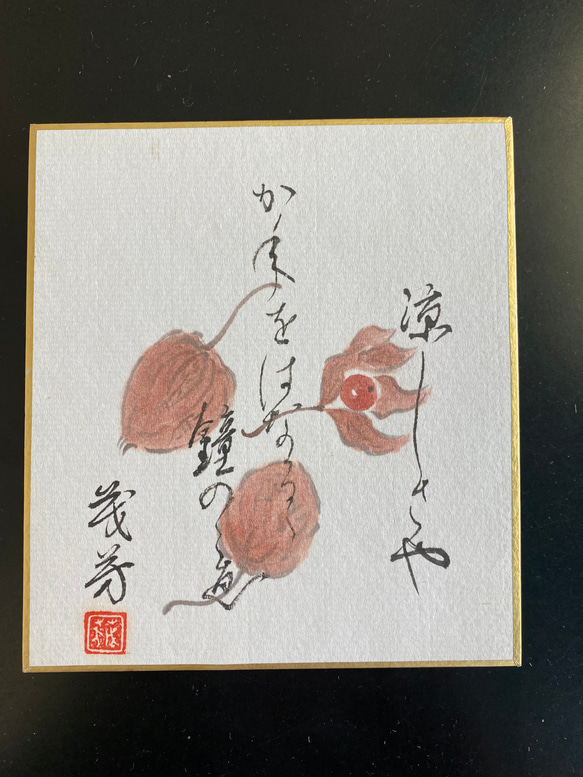 涼しさや
かねをはなるゝ
鐘のこゑ
茂芳